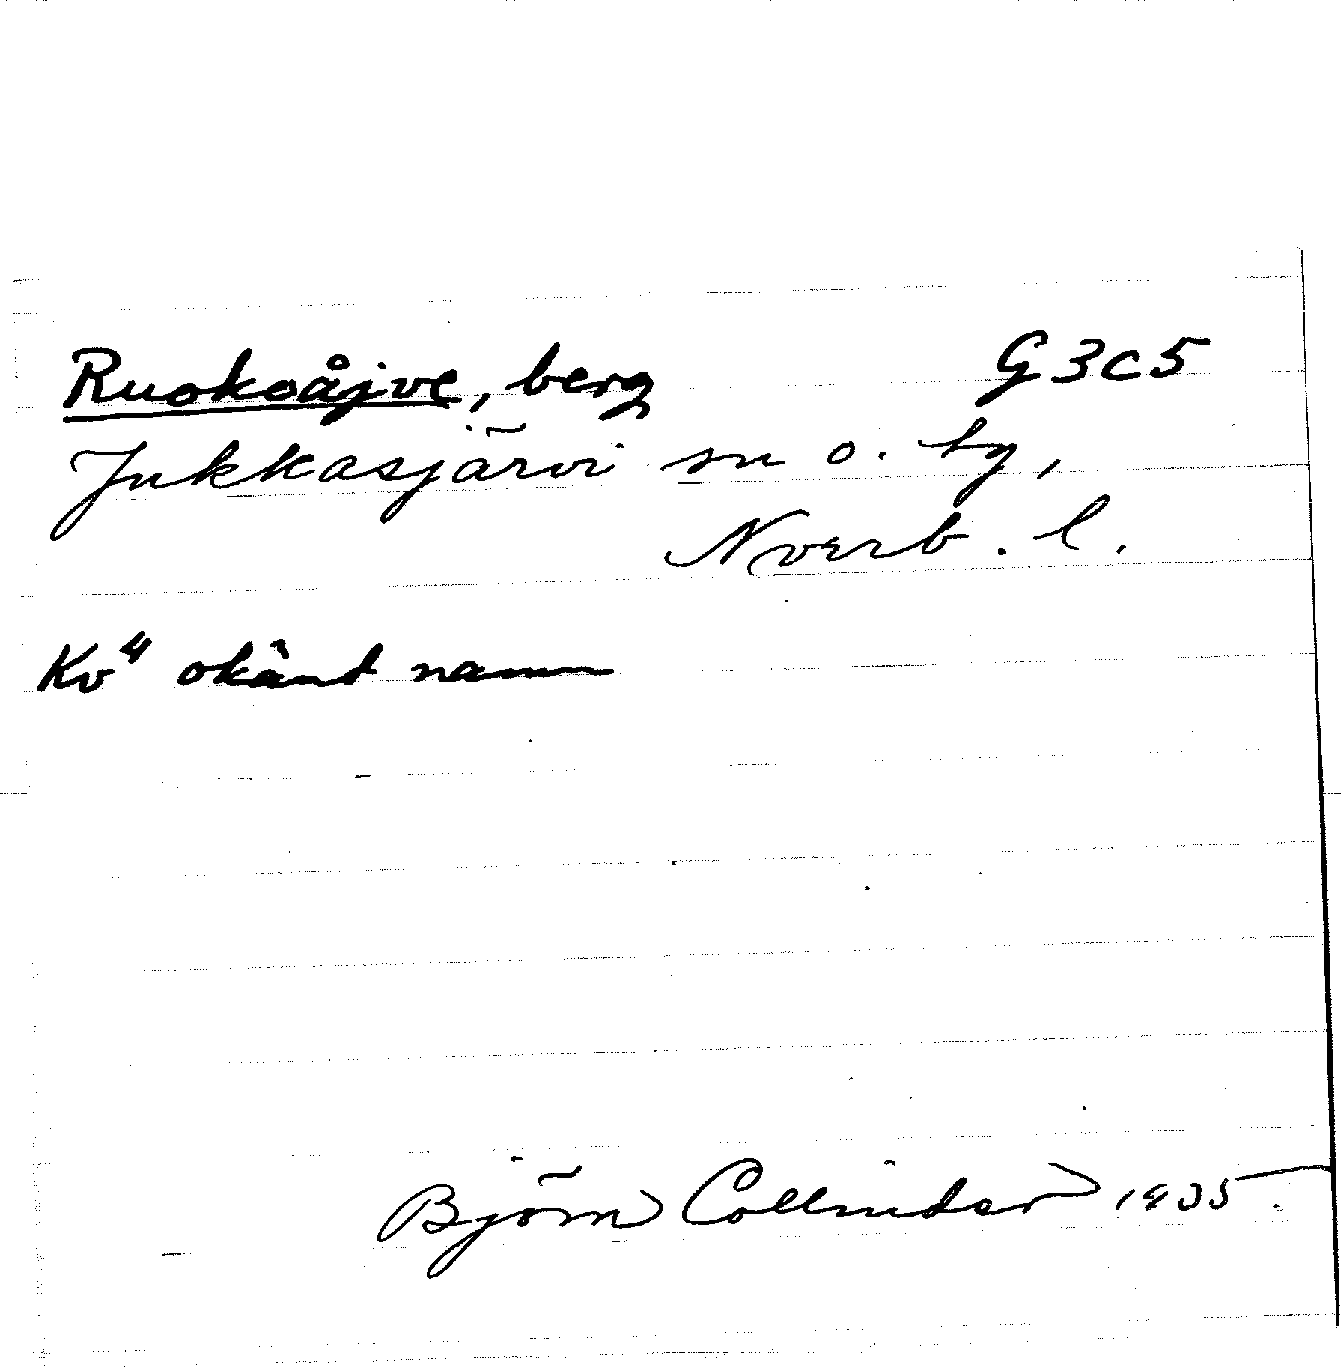 Ruokoåjve, berg G3c5
Jukkasjärvi sn o. tg,
Norrb. l.
Kv4 okänt namn
Björn Collinder 1935.